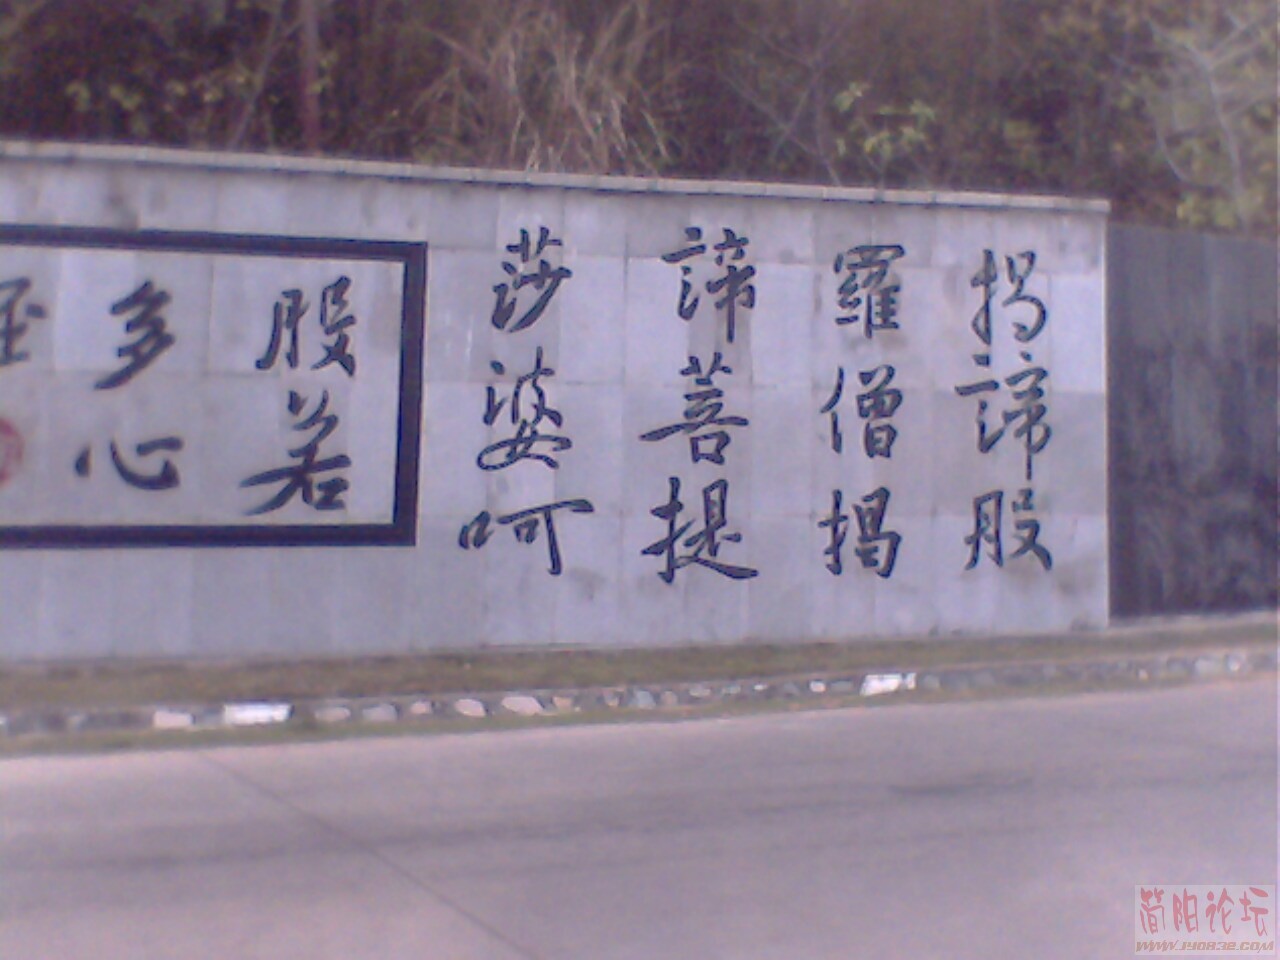 揭諦股
羅僧揭
諦菩提
莎婆呵
股若
多心
简阳论坛
WWW.JY0832.COM